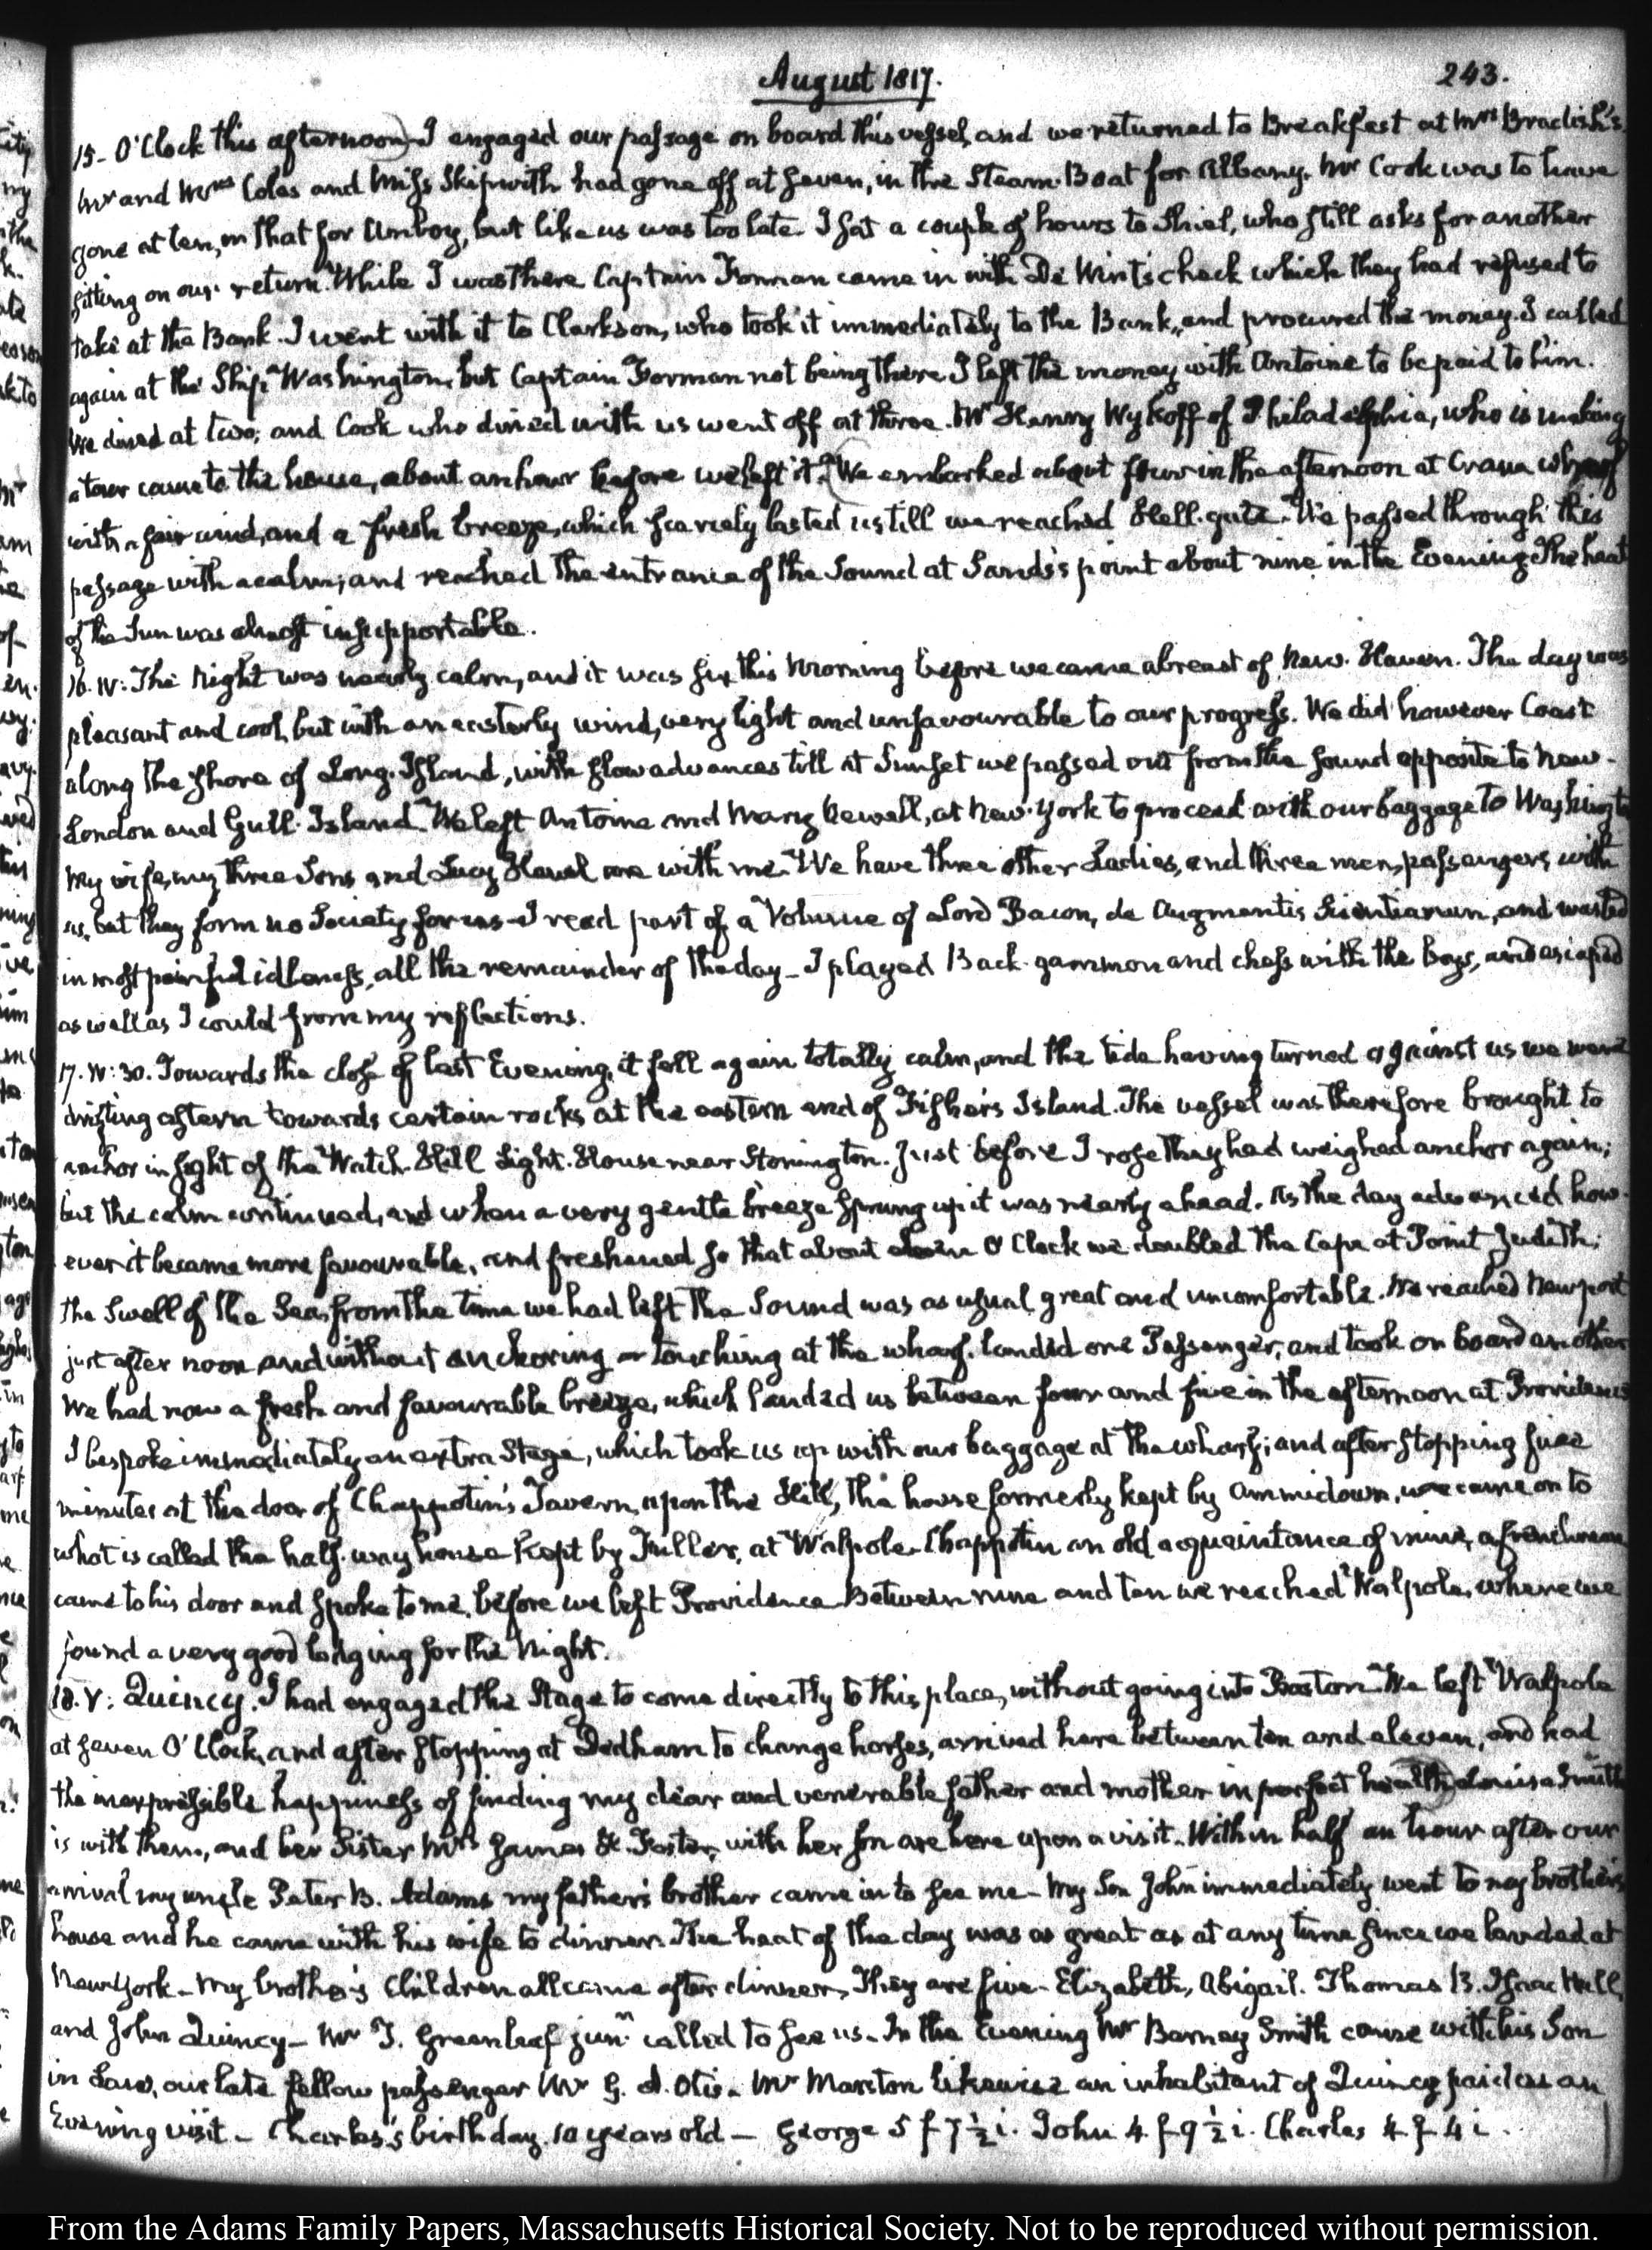 August 1817.
243.
15- O'Clock this afternoon) I engaged our passage on board this vessel, and we returned to Breakfast at Mrs Bradish's.
Mr and Mrs Coles and Miss Skipwith had gone off at seven, in the Steam-Boat for Albany. Mr Cook was to have
gone at ten, in that for Amboy, but like us was too late. I sat a couple of hours to Shiel, who still asks for another
sitting on our return. While I was there Captain Forman came in with De Wint's check which they had refused to
take at the Bank. I went with it to Clarkson, who took it immediately to the Bank, and procured the money. I called
again at the Ship Washington, but Captain Forman not being there I left the money with Antoine to be paid to him.
We dined at two; and Cook who dined with us went off at three. Mr Henry Wykoff of Philadelphia, who is making
a tour came to the house, about an hour before we left it. (We embarked about four in the afternoon at Crane wharf
with a fair wind, and a fresh breeze, which scarcely lasted us till we reached Hell-gate. We passed through this
passage with a calm; and reached the entrance of the Sound at Sands's point about nine in the Evening. The heat
of the Sun was almost insupportable.
16. IV: The Night was nearly calm, and it was six this Morning before we came abreast of New-Haven. The day was
pleasant and cool, but with an easterly wind, very light and unfavourable to our progress. We did however Coast
along the shore of Long-Island, with slow advances till at Sunset we passed out from the sound opposite to New-
London and Gull-Island. We left Antoine and Mary Newell, at New-York to proceed with our baggage to Washington
My wife, my three Sons and Lucy Houel are with me. We have three other Ladies, and three men, passengers with
us, but they form no Society for us- I read part of a Volume of Lord Bacon, de Augmentis Scientiarum, and wasted
in most painful idleness, all the remainder of the day- I played Back-gammon and chess with the boys, and escaped
as well as I could from my reflections.
17. IV:30. Towards the close of last Evening, it fell again totally calm, and the tide having turned against us we were
drifting astern towards certain rocks at the eastern end of Fisher's Island. The vessel was therefore brought to
anchor in sight of the Watch-Hill Light-House near Stonington. Just before I rose they had weighed anchor again;
but the calm continued, and when a very gentle breeze sprung up it was nearly ahead. As the day advanced how-
ever it became more favourable, and freshened so that about eleven O'Clock we doubled the Cape at Point Judith;
the Swell of the Sea, from the time we had left the Sound was as usual great and uncomfortable. We reached Newport
just after noon and without anchoring or touching at the wharf, landed one Passenger, and took on board another
We had now a fresh and favourable breeze, which landed us between four and five in the afternoon at Providence
I bespoke immediately an extra Stage, which took us up with our baggage at the wharf; and after stopping five
minutes at the door of Chappotin's Tavern, upon the Hill, the house formerly kept by Ammidown, we came on to
what is called the half-way house kept by Fuller, at Walpole. Chappotin an old acquaintance of mine, a frenchman
came to his door and spoke to me, before we left Providence. Between nine and ten we reached Walpole, where we
found a very good lodging for the Night.
18. V: Quincy. I had engaged the Stage to come directly to this place, without going into Boston. We left Walpole
at seven O'Clock, and after stopping at Dedham to change horses, arrived here between ten and eleven, and had
the inexpressible happiness of finding my dear and venerable father and mother in perfect health. Louisa Smith
is with them, and her Sister Mrs James H. Foster, with her son are here upon a visit. Within half an hour after our
arrival my uncle Peter B. Adams my father's brother came in to see me- My Son John immediately went to my brother's
house and he came with his wife to dinner. The heat of the day was as great as at any time since we landed at
New York- My brother's Children all came after dinner. They are five- Elizabeth, Abigail. Thomas B. Isaac Hull,
and John Quincy- Mr T. Greenleaf junr called to see us- In the Evening Mr Barney Smith came with his Son
in Law, our late fellow passenger Mr G. A. Otis- Mr Marston likewise an inhabitant of Quincy paid us an
Evening visit- Charles's birthday. 10 years old- George 5 f 7 1/2 i. John 4 f 9 1/2 i. Charles 4 f 4 i.
From the Adams Family Papers, Massachusetts Historical Society. Not to be reproduced without permission.